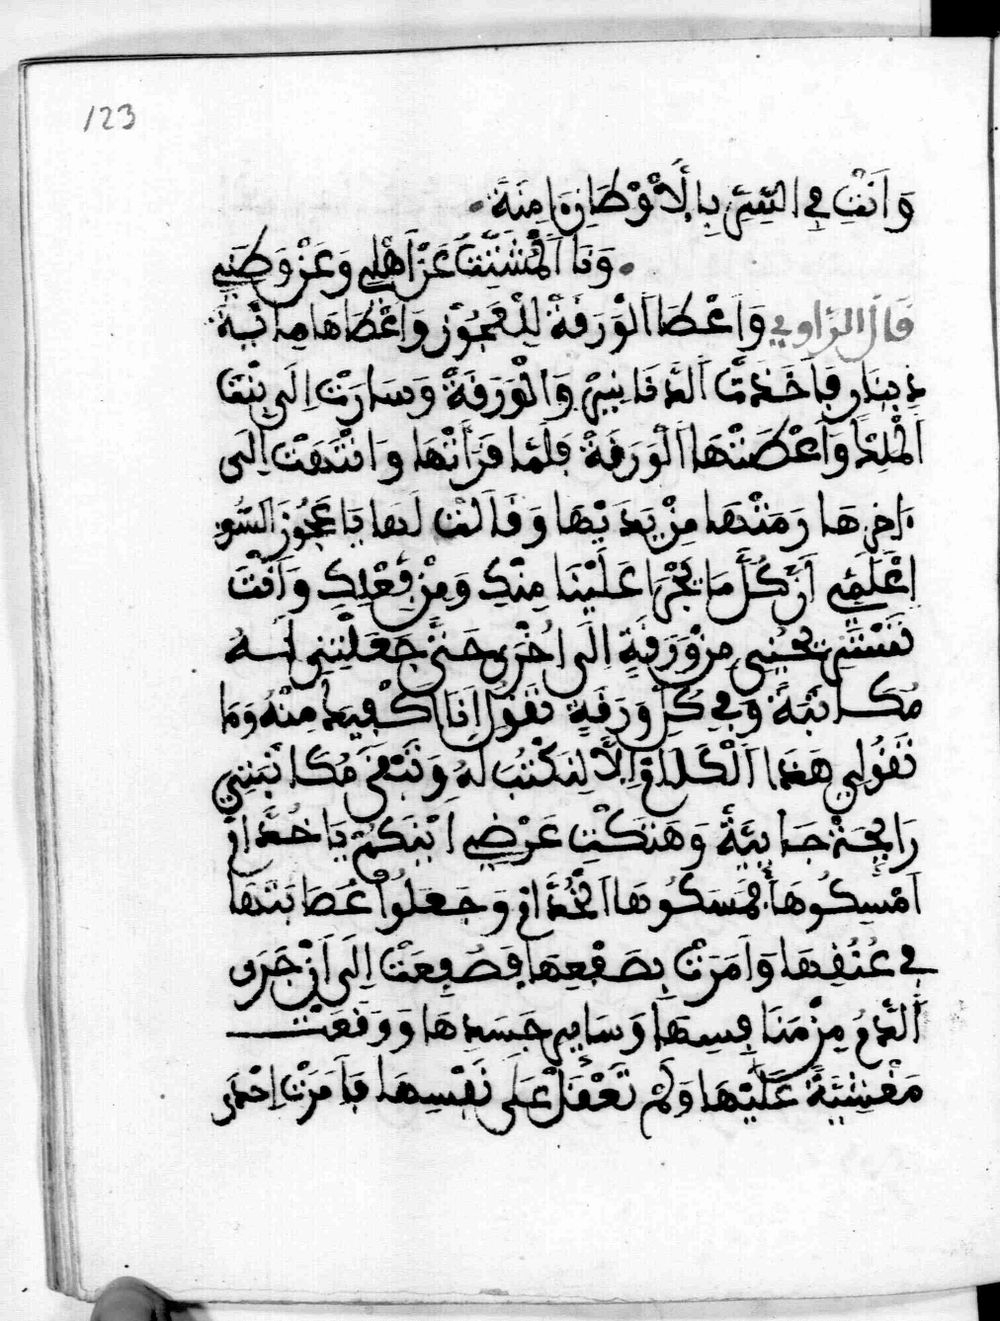 123
وَاَنْتِ فِي السِّجْنِ بِالْاَوْطَانِ مِنَةً
وَنَا الْمُشَتَّتْ عَنْ اَهْلِي وَعَنْ وَطَنِي
قَالَ الرَّاوِي وَاَعْطَا الْوَرَقَةْ لِلْعَجُوْز وَاعْطَاهَا مِائَيَةْ
دِينَار فَاَخَذَتْ الدَّنَانِيرْ وَالْوَرَقَةْ وَسَارَتْ اِلَى بِنْتْ
الْمَلِكْ وَاَعْطَتْهَا الْوَرَقَةْ فَلَمَّا قَرَاَتْهَا وَانْتَهَتْ اِلَى
ءَاخِرِهَا رَمَتْهَا مِنْ يَدَيْهَا وَقَالَتْ لَهَا يَا عَجُوز السُّو
اِعْلَمِي اَنَّ كُلَّ مَا يَجْرَا عَلَيْنَا مِنْكِ وَمِنْ فِعْلِكِ وَاَنْتَ
مِنْ وَرَقَةٍ اِلَى اُخْرَى حَتَّى جَعَلْتِنِي لَهُ
مُكَاتَبَةً وَفِي كُلِّ وَرَقَةٍ تَقُوْل اَنَا نَكْفِيكْ مِنْهُ وَمَا
تَقُولِي هَذَا الْكَلَامْ اِلَّا لِنَكْتُبْ لَهُ وَتَبْقَى مُكَاتَبَتِي
رَايِحَةْ جَايِئَةْ وَهَتَكْتِ عَرْضِي ابْنَكُمْ يَا خُدَّامْ
اَمْسِكُوهَا فَمَسَكُوهَا الْخُدَّامْ وَجَعَلُوا عُصَابَتَهَا
فِي عُنُقِهَا وَاَمَرَتْ بِصَفْعِهَا فَصُفِعَتْ اِلَى اَنْ جَرَى
الدَّمُ مِنْ مَنَافِسِهَا وَسَايِرِ جَسَدِهَا وَوَقَعَتْ
مَغْشِيَّةً عَلَيْهَا وَلَمْ تَعْقَلْ عَلَى نَفْسِهَا فَاَمَرَتْ اِحْدَى